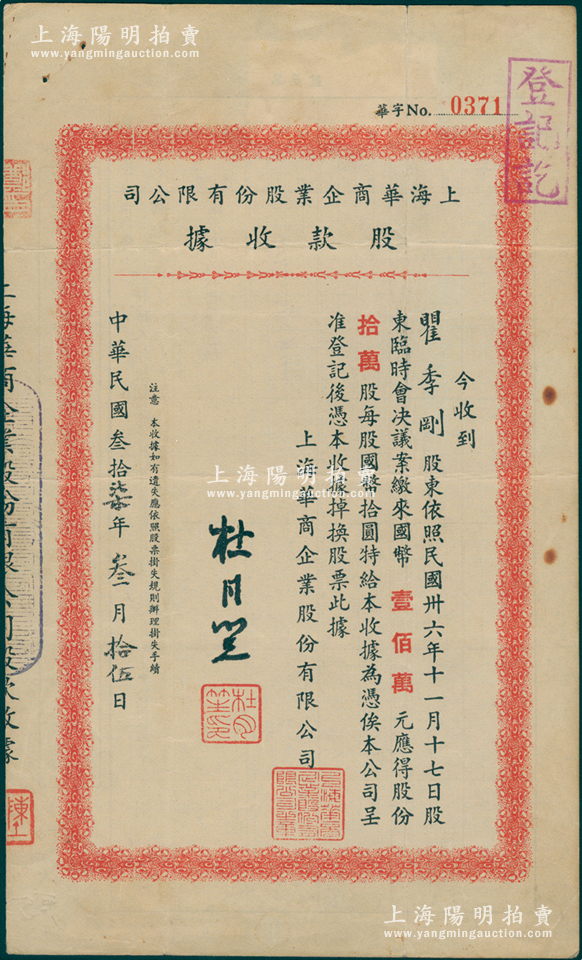 上海陽明拍賣
www.yangmingauction.com
華字No. 0371
登記訖
上海華商企業股份有限公司
股款收據
今收到
瞿季剛 股東依照民國卅六年十一月十七日股
東臨時會决議案繳來國幣 壹佰萬 元應得股份
拾萬 股每股國幣拾圓特給本收據為憑俟本公司呈
准登記後憑本收據掉換股票此據
上海華商企業股份有限公司
杜月笙
杜月笙印
注意 本收據如有遺失應依照股票掛失規則辦理掛失手續
中華民國叁拾柒年叁月拾伍日
上海華商企業股份有限公司股款收據
上海陽明拍賣
www.yangmingauction.com
上海陽明拍賣
www.yangmingauction.com